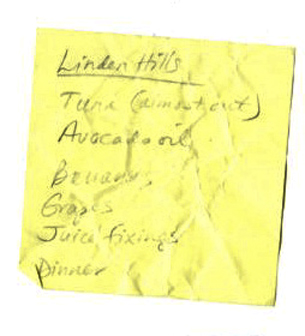 Linden Hills
Tuna (almost out)
Avocado oil
Bananas
Grapes
Juice fixings
Dinner